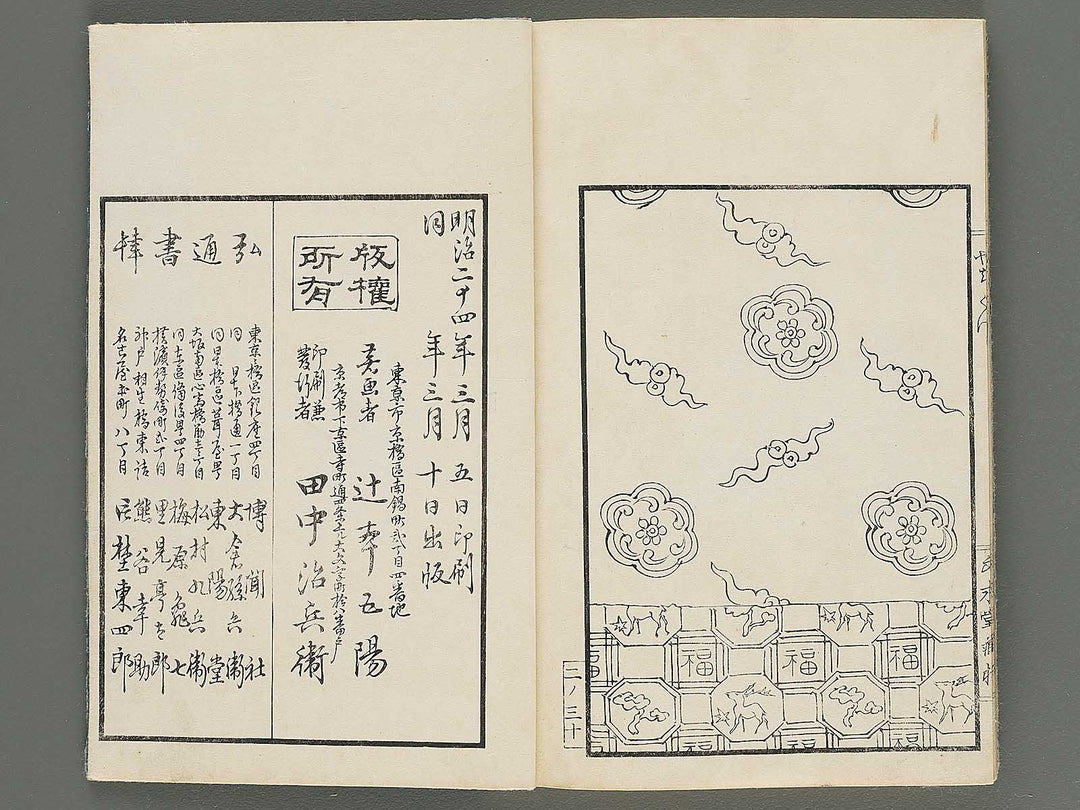 福
福
福
福
福
福
三ノ三十
明治二十四年三月五日印刷
同年三月十日出版
版權
所有
東京市京橋區南鍋町貳丁目四番地
著画者 辻 五陽
京都市下京區寺町通四条上ル
印刷兼
發行者 田中治兵衛
弘通書肆
東京々橋區銀座四丁目 博聞社
同 日本橋通一丁目 大倉孫兵衛
同 京橋區 東陽堂
大坂南區心斎橋筋 松村九兵衛
同 東區備後町四丁目 梅原亀七
横濱伊勢佐町 丁目 里見亭太郎
神戸相生橋東詰 熊谷幸助
名古屋本町八丁目 片野東四郎